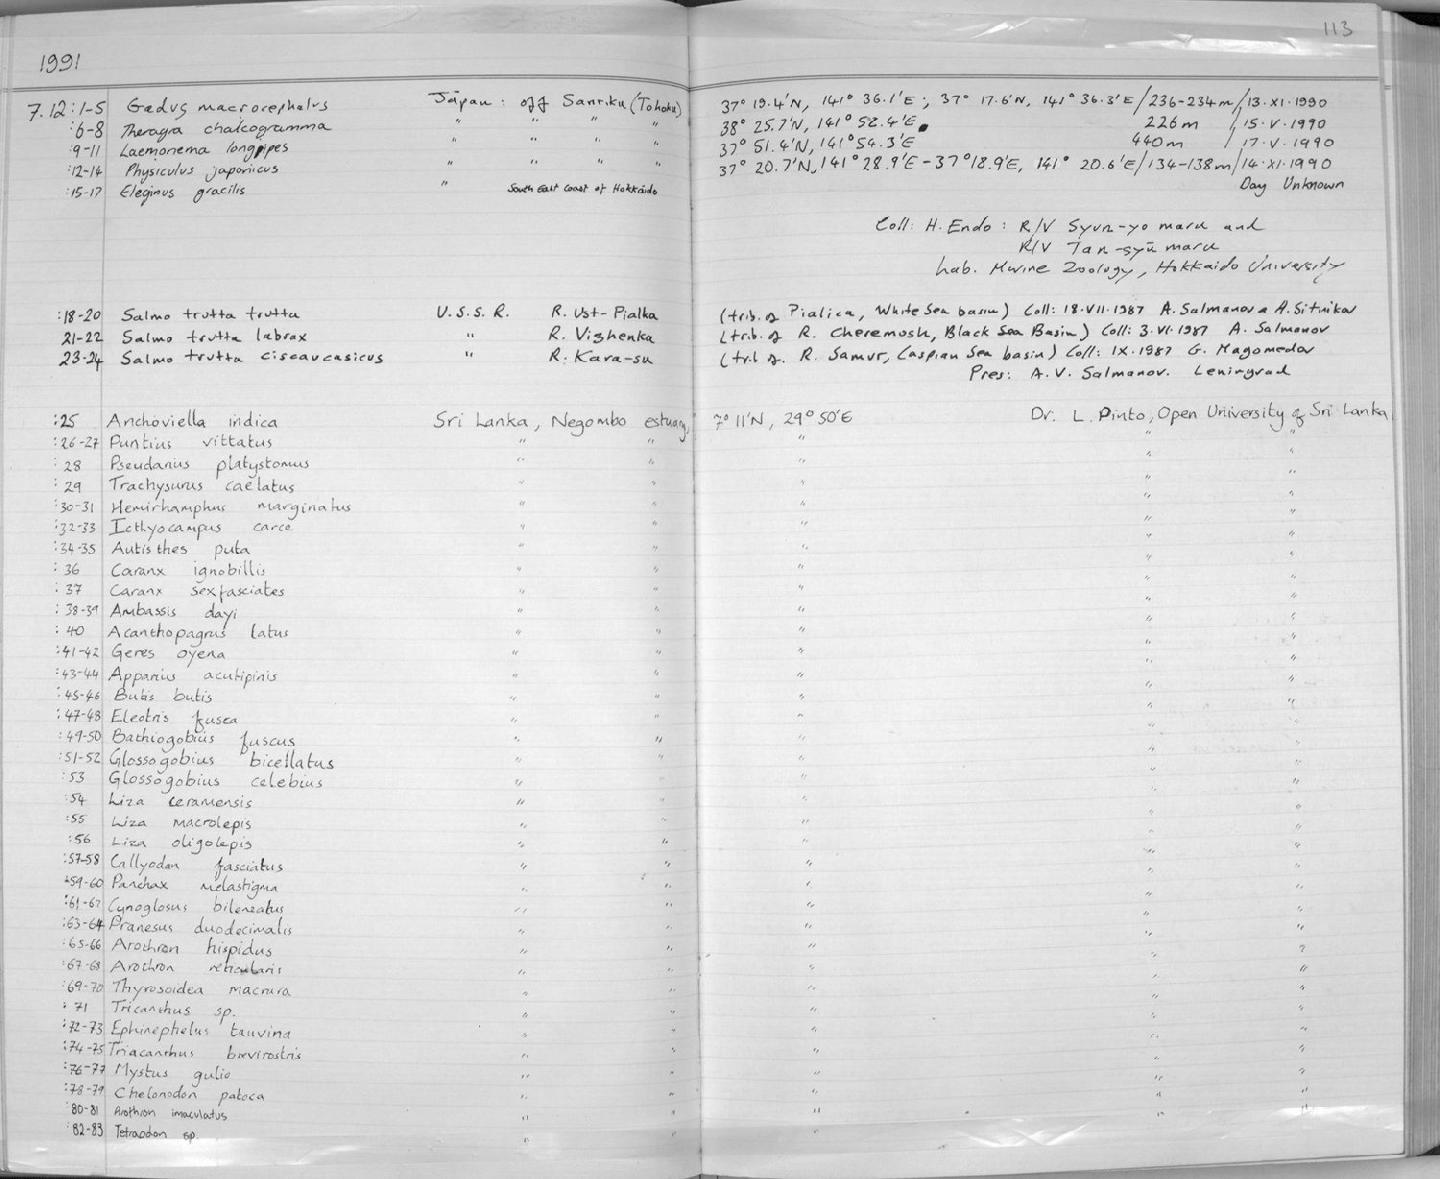 113
1991
7.12:1-5 Gadus macrocephalus Japan: off Sanriku (Tohoku) 37° 19.4'N, 141° 36.1'E; 37° 17.6'N, 141° 36.3'E/236-234m/13.XI.1990
:6-8 Theragra chalcogramma " " " " 38° 25.7'N, 141° 52.4'E 226m / 15.V.1990
:9-11 Laemonema longpipes " " " " 37° 51.4'N, 141° 54.3'E 440m / 17.V.1990
:12-14 Physiculus japonicus " " " " 37° 20.7'N, 141° 28.9'E - 37° 18.9'E, 141° 20.6'E/134-138m/14.XI.1990
:15-17 Eleginus gracilis " South East Coast of Hokkaido Day Unknown
Coll: H. Endo: R/V Syun-yo maru and
R/V Tan-syū maru
Lab. Marine Zoology, Hokkaido University
:18-20 Salmo trutta trutta U.S.S.R. R. Ust-Pialka (trib. of Pialica, White Sea basin) Coll: 18.VII.1987 A. Salmanov & A. Sitnikov
21-22 Salmo trutta labrax " R. Vizhenka (trib. of R. Cheremosh, Black Sea Basin) Coll: 3.VI.1987 A. Salmanov
23-24 Salmo trutta ciscaucasicus " R. Kara-su (trib of R. Samur, Caspian Sea basin) Coll: IX.1987 G. Magomedov
Pres: A.V. Salmanov. Leningrad
:25 Anchoviella indica Sri Lanka, Negombo estuary, 7° 11'N, 29° 50'E Dr. L. Pinto, Open University of Sri Lanka
:26-27 Puntius vittatus " " " " "
:28 Pseudarius platystomus " " " " "
:29 Trachysurus caelatus " " " " "
:30-31 Hemirhamphus marginatus " " " " "
:32-33 Icthyocampus carce " " " " "
:34-35 Autisthes puta " " " " "
:36 Caranx ignobillis " " " " "
:37 Caranx sexfasciates " " " " "
:38-39 Ambassis dayi " " " " "
:40 Acanthopagrus latus " " " " "
:41-42 Geres oyena " " " " "
:43-44 Apparius acutipinis " " " " "
:45-46 Butis butis " " " " "
:47-48 Eleotris fusca " " " " "
:49-50 Bathiogobius fuscus " " " " "
:51-52 Glossogobius bicellatus " " " " "
:53 Glossogobius celebius " " " " "
:54 Liza ceramensis " " " " "
:55 Liza macrolepis " " " " "
:56 Liza oligolepis " " " " "
:57-58 Callyodon fasciatus " " " " "
:59-60 Panchax melastigma " " " " "
:61-62 Cynoglosus bileneatus " " " " "
:63-64 Pranesus duodecimalis " " " " "
:65-66 Arothron hispidus " " " " "
:67-68 Arothron reticularis " " " " "
:69-70 Thyrosoidea macrura " " " " "
:71 Tricanthus sp. " " " " "
:72-73 Ephinephelus tauvina " " " " "
:74-75 Triacanthus brevirostris " " " " "
:76-77 Mystus gulio " " " " "
:78-79 Chelonodon patoca " " " " "
:80-81 Arothron imaculatus " " " " "
:82-83 Tetraodon sp. " "